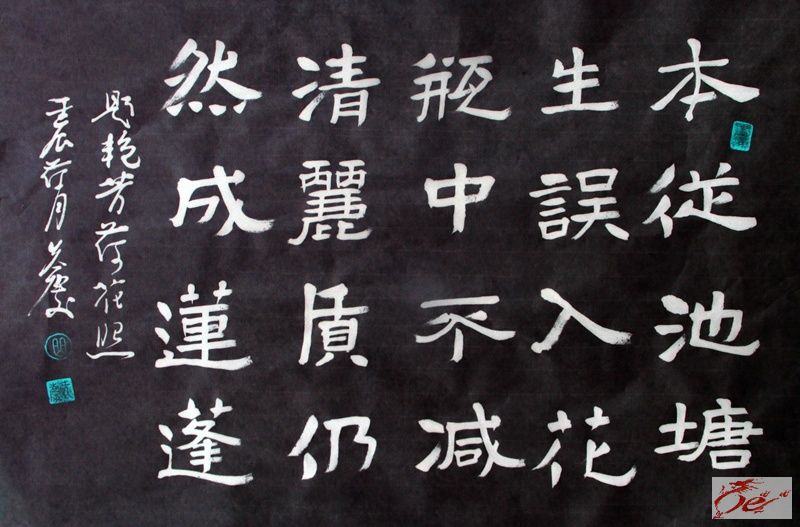 本從池塘
生誤入花
瓶中不減
清麗质仍
然成蓮蓬
题艳芳荷花照
壬辰荷月